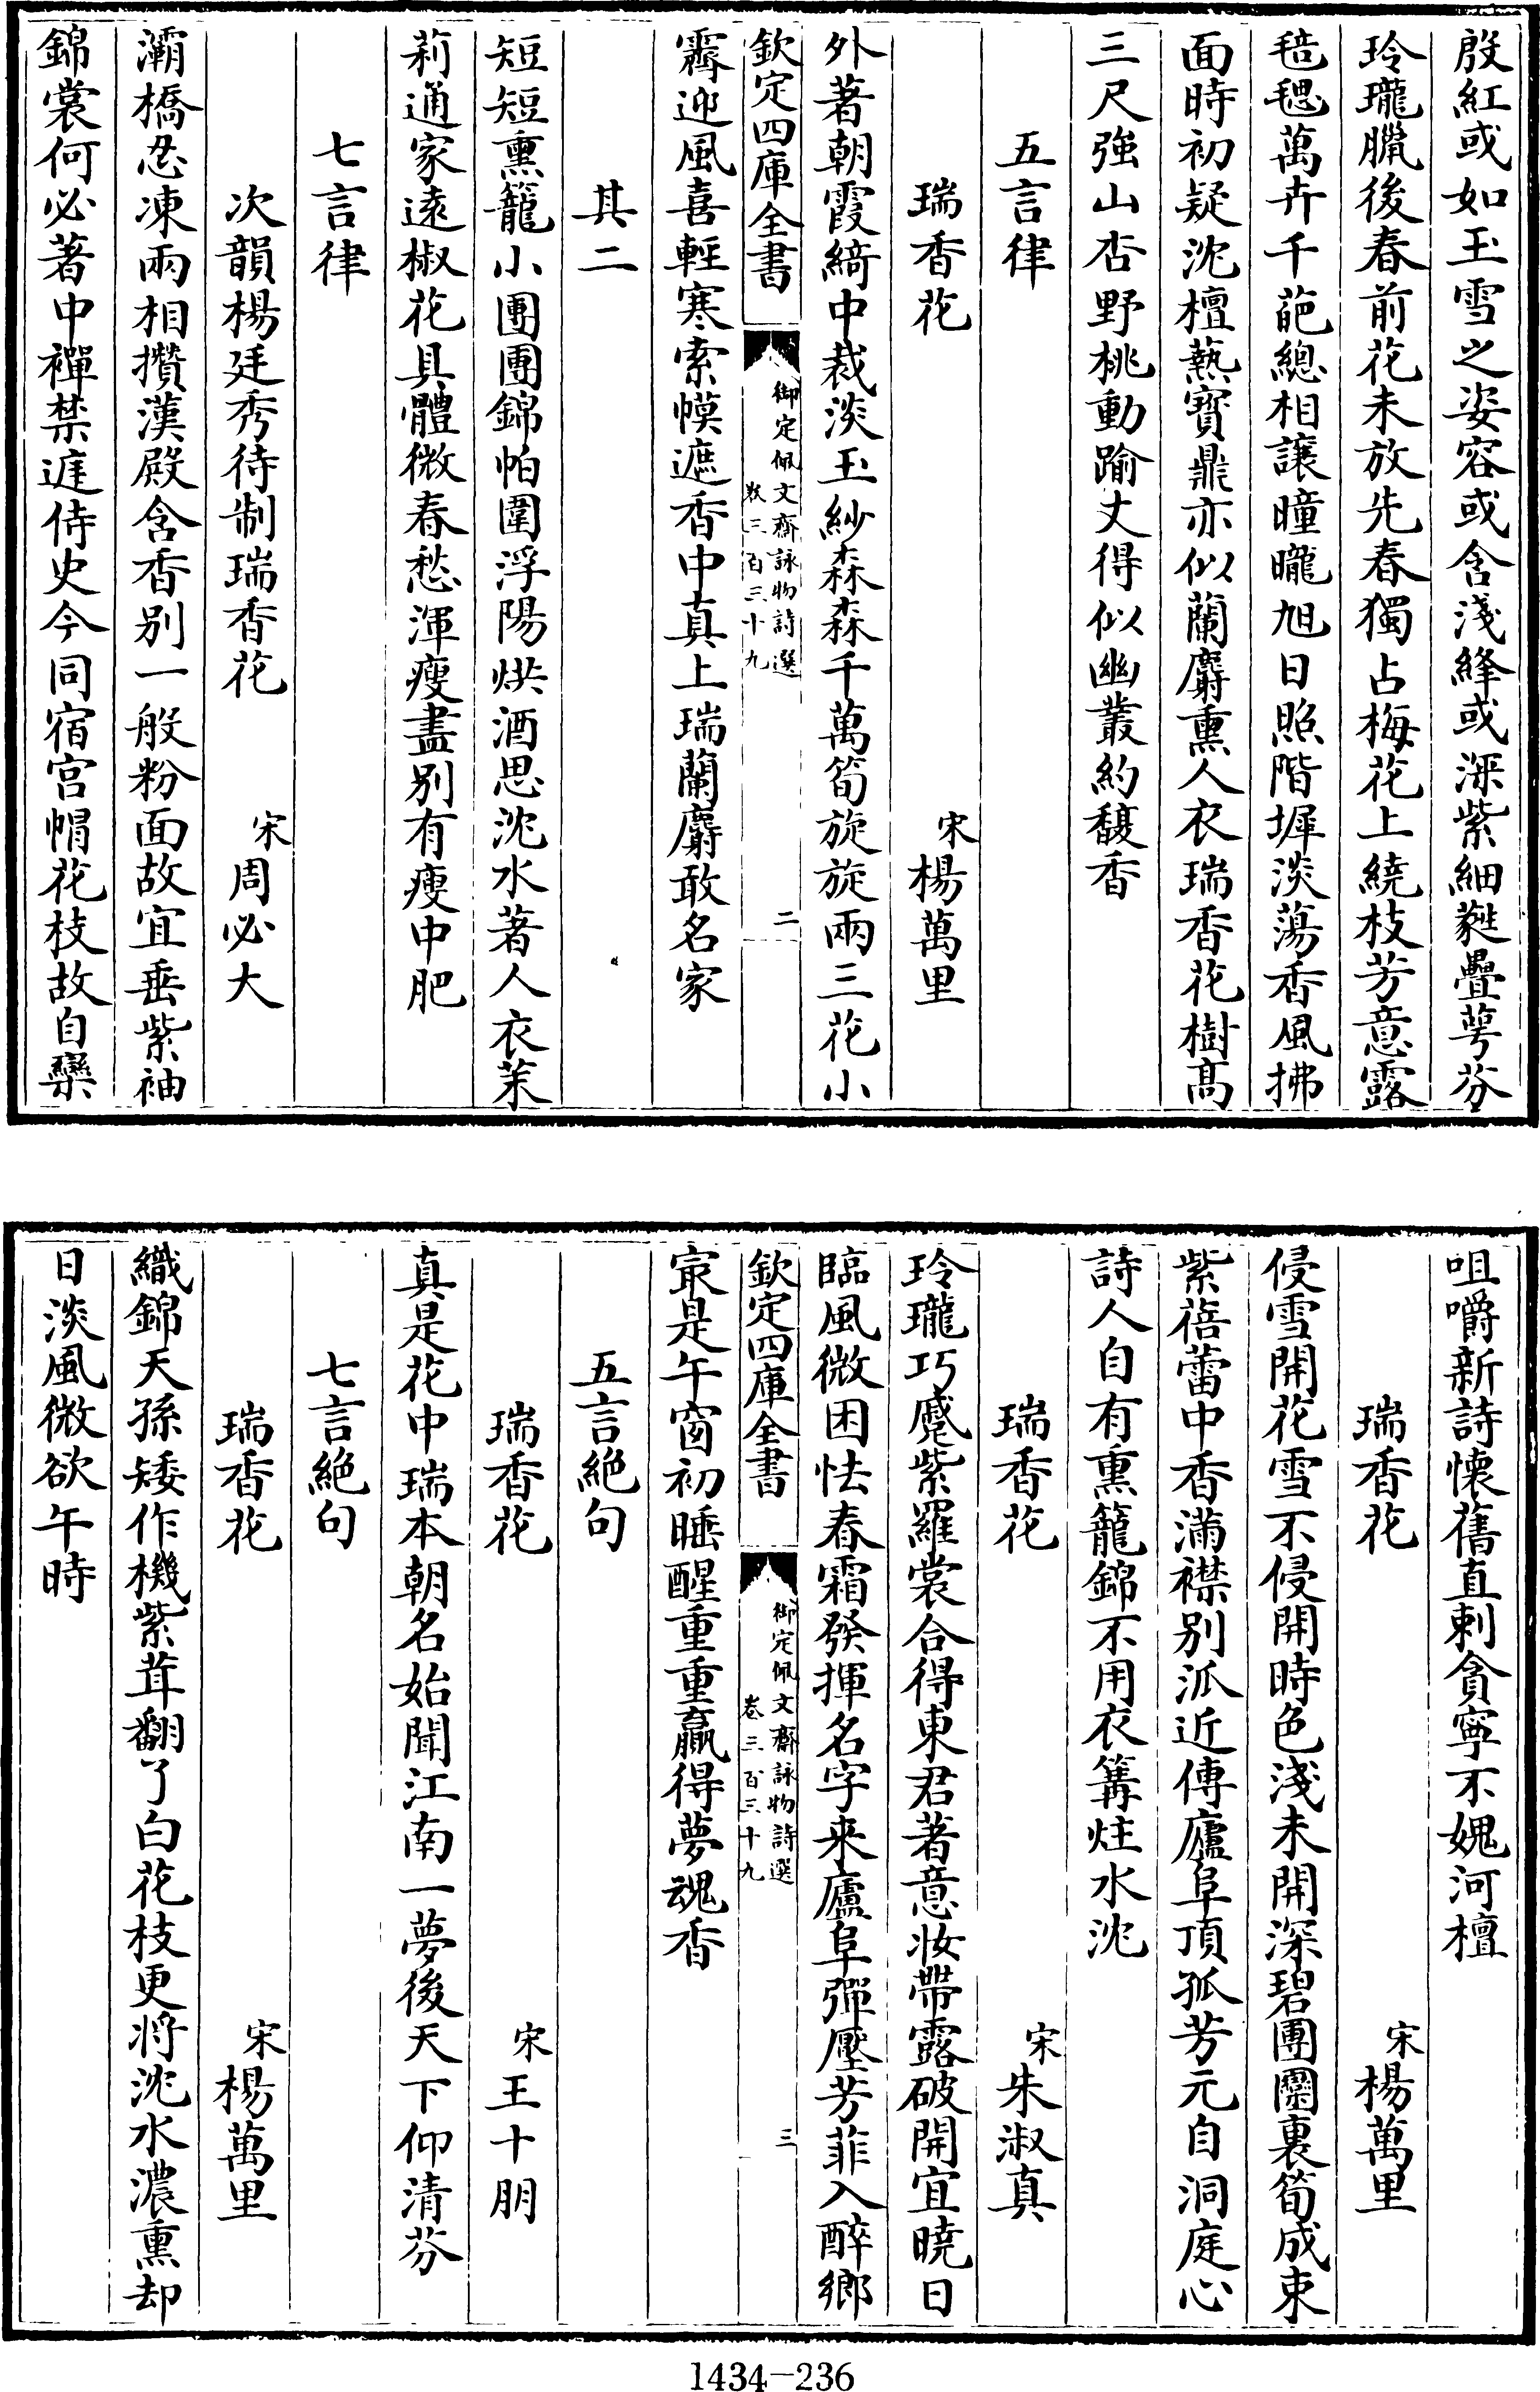 殷紅或如玉雪之姿容或含淺絳或深紫細蕤疊萼芬
玲瓏臘後春前花未放先春獨占梅花上繞枝芳意露
毰毸萬卉千葩總相讓曈曨旭日照階墀淡蕩香風拂
面時初疑沈檀爇寳鼎亦似蘭麝熏人衣瑞香花樹髙
三尺強山杏野桃動踰丈得似幽叢約馥香
五言律
瑞香花 宋楊萬里
外著朝霞綺中裁淡玉紗森森千萬筍旋旋兩三花小
欽定四庫全書 御定佩文齋詠物詩選 卷三百三十九 二
霽迎風喜輕寒索幙遮香中真上瑞蘭麝敢名家
其二
短短熏籠小團團錦帕圍浮陽烘酒思沈水著人衣茉
莉通家逺椒花具體微春愁渾瘦盡别有瘦中肥
七言律
次韻楊廷秀待制瑞香花 宋周必大
灞橋忍凍兩相攢漢殿含香别一般粉面故宜垂紫袖
錦裳何必著中襌禁遥侍史今同宿宫帽花枝故自欒
咀嚼新詩懐舊直剌貪寜不媿河檀
瑞香花 宋楊萬里
侵雪開花雪不侵開時色淺未開深碧團圞裏筍成束
紫蓓蕾中香滿襟别派近傳廬阜頂孤芳元自洞庭心
詩人自有熏籠錦不用衣篝炷水沈
瑞香花 宋朱淑真
玲瓏巧蹙紫羅裳合得東君著意妝帶露破開宜曉日
臨風微困怯春霜發揮名字来廬阜彈壓芳菲入醉鄉
欽定四庫全書 御定佩文齋詠物詩選 卷三百三十九 三
㝡是午窗初睡醒重重贏得夢魂香
五言絶句
瑞香花 宋王十朋
真是花中瑞本朝名始聞江南一夢後天下仰清芬
七言絶句
瑞香花 宋楊萬里
織錦天孫矮作機紫茸翻了白花枝更將沈水濃熏却
日淡風微欲午時
1434-236